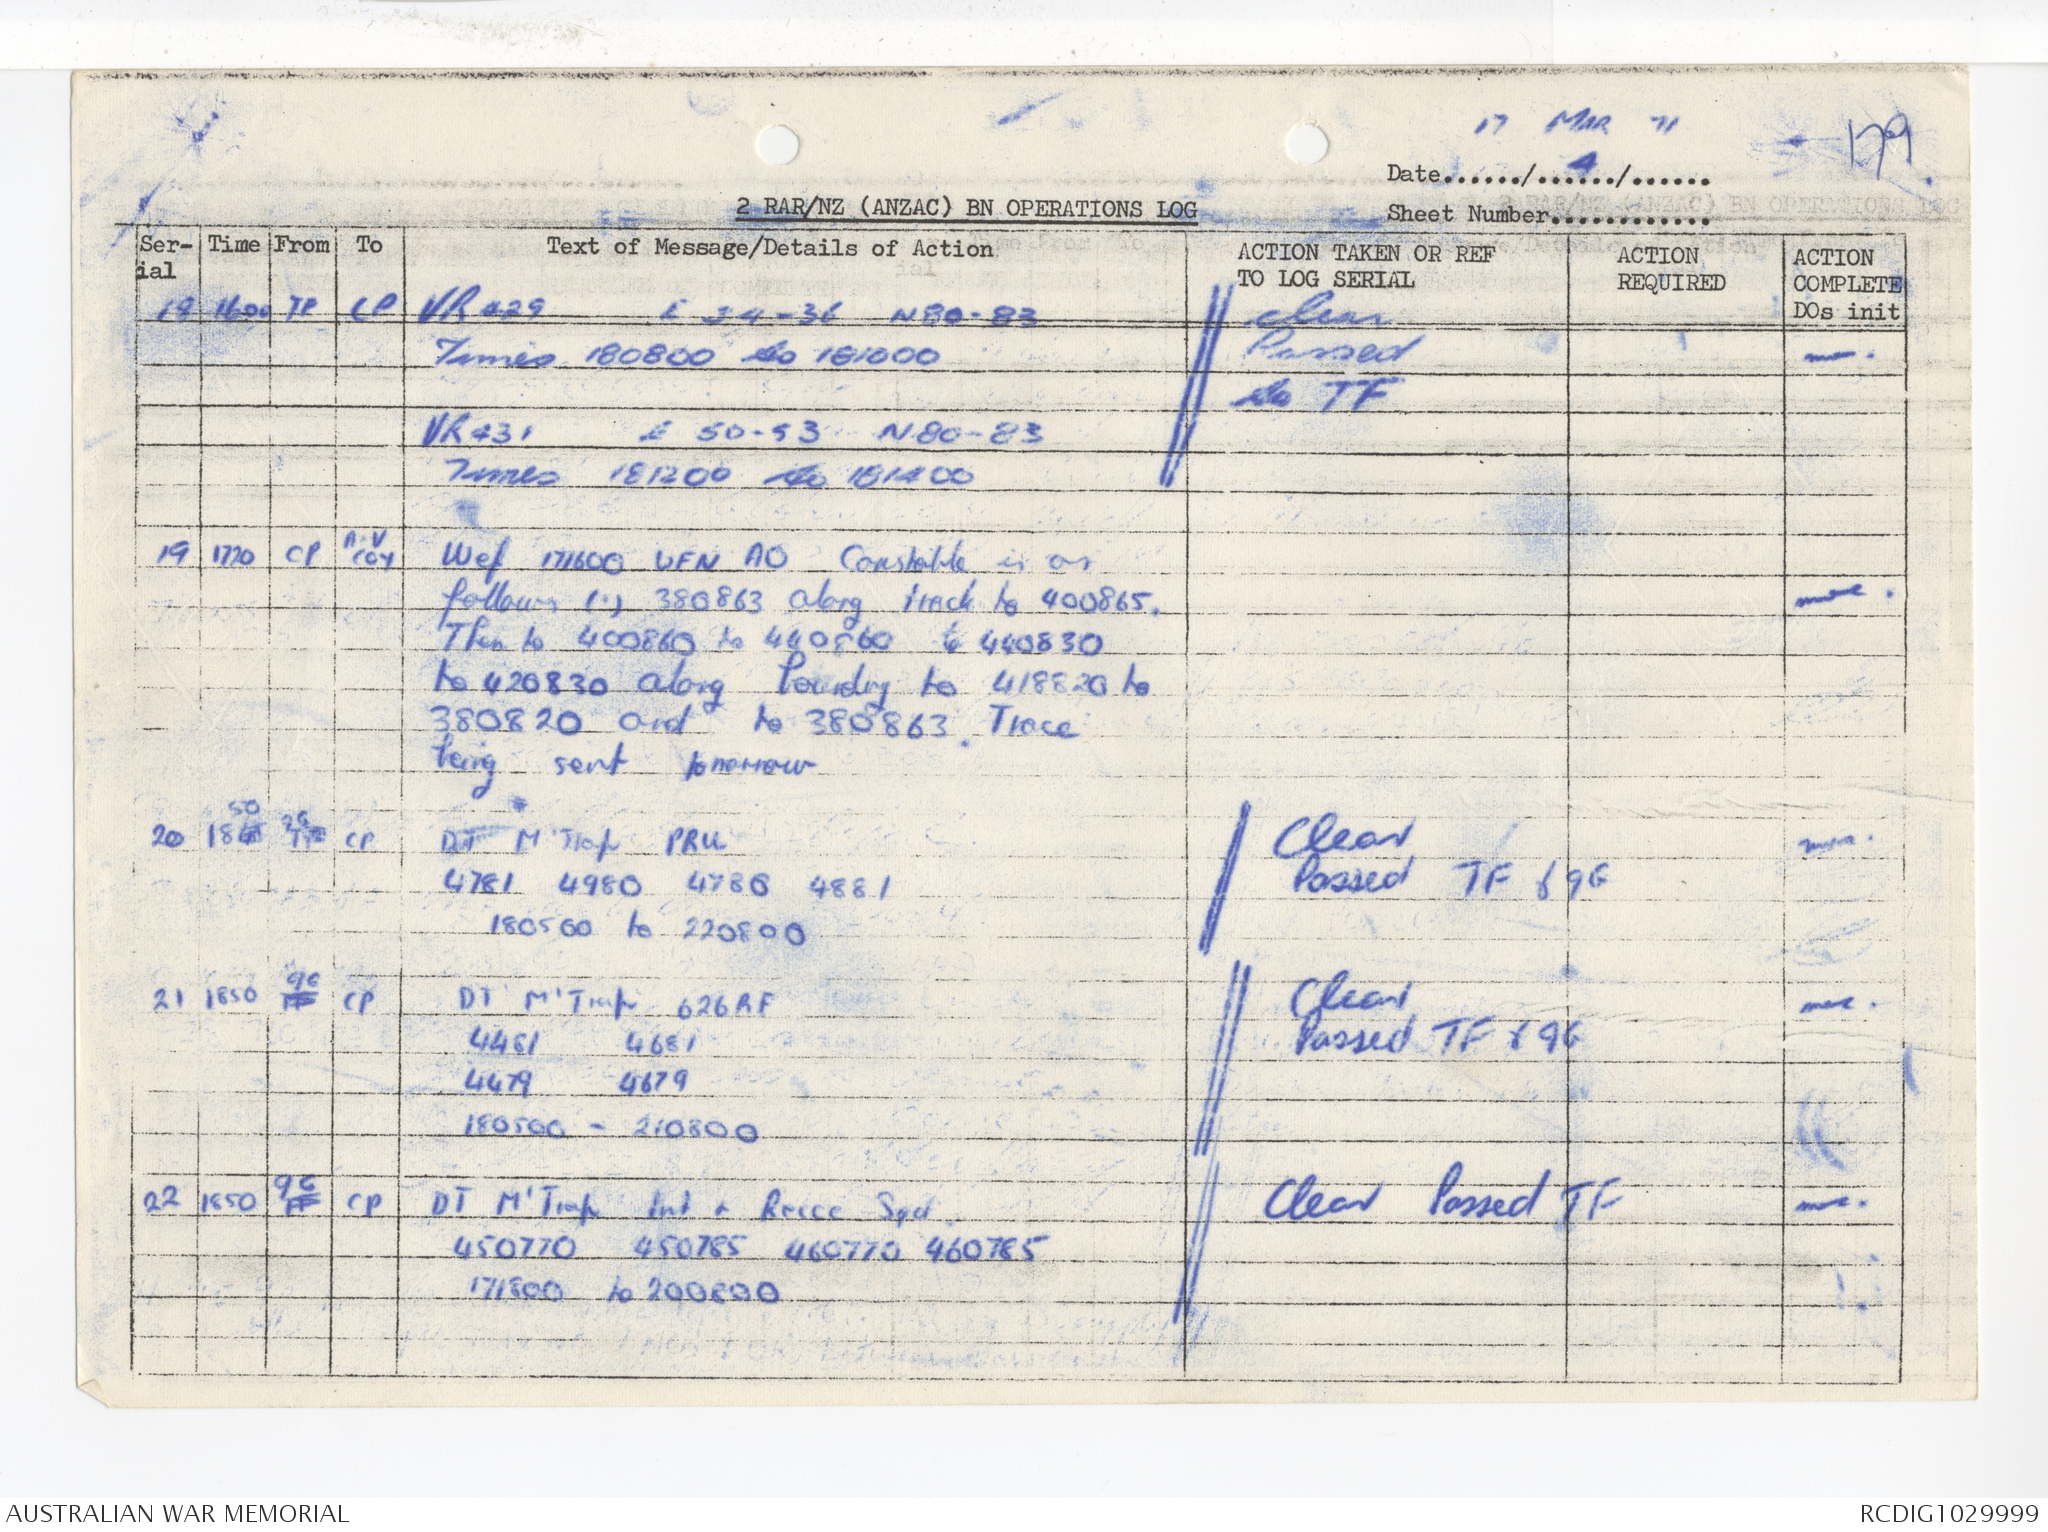 17 MAR 71
179
Date....../...4.../......
2 RAR/NZ (ANZAC) BN OPERATIONS LOG
Sheet Number............
Ser-
ial
Time
From
To
Text of Message/Details of Action
ACTION TAKEN OR REF
TO LOG SERIAL
ACTION
REQUIRED
ACTION
COMPLETE
DOs init
18 1600 TP CP VR 429 E 34-36 N80-83 Clear
Times 180800 to 181000 Passed
to TF
VR 431 E 50-53 N80-83
Times 181200 to 181400
19 1770 CP A.V COY Wef 171600 UFN AO Constable is as
follows (.) 380863 along track to 400865.
Then to 400860 to 440860 to 440830
to 420830 along boundry to 418820 to
380820 and to 380863. Trace
being sent tomorrow
20 1850 CP DT M'Trap PRU Clear
4781 4980 4786 4881 Passed TF & 9G
180500 to 220800
21 1850 9G CP DT M'Trap 626RF Clear
4481 4681 Passed TF & 9G
4479 4679
180500 - 210800
22 1850 9G CP DT M'Trap Int & Recce Sqd. Clear Passed TF
450770 450785 460770 460785
171800 to 200800
AUSTRALIAN WAR MEMORIAL
RCDIG1029999